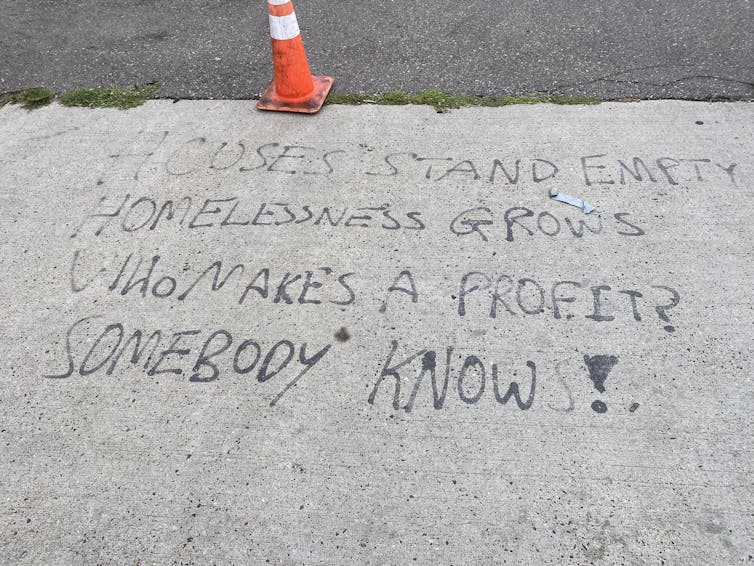 HOUSES STAND EMPTY
HOMELESSNESS GROWS
WHO MAKES A PROFIT?
SOMEBODY KNOWS!